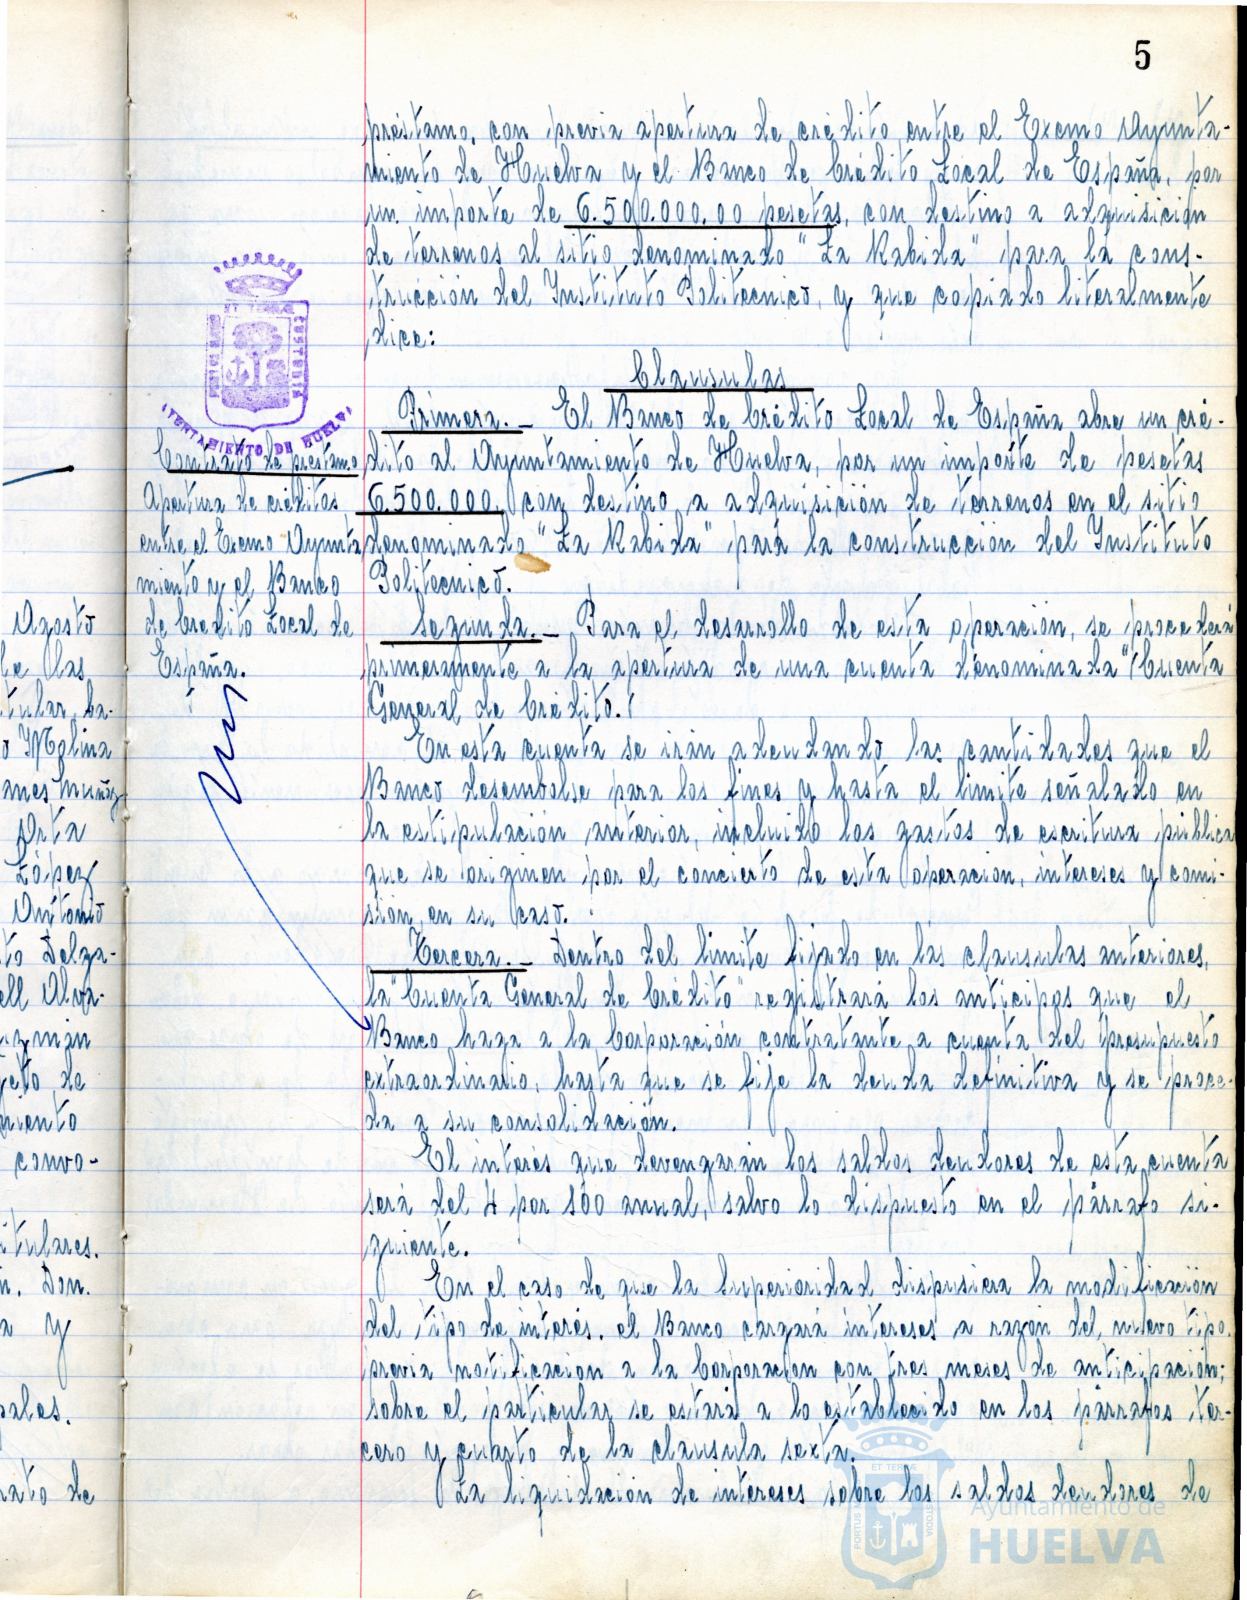 5
préstamo, con previa apertura de crédito, entre el Excmo Ayunta-
miento de Huelva y el Banco de Crédito Local de España, por
un importe de 6.500.000.00 pesetas, con destino a adquisición
de terrenos al sitio denominado "La Rabida" para la cons-
trucción del Instituto Politecnico, y que copiado literalmente
dice:
Clausulas
Primera.- El Banco de Crédito Local de España abre un cré-
dito al Ayuntamiento de Huelva, por un importe de pesetas
6.500.000, con destino a adquisición de terrenos en el sitio
denominado "La Rabida" para la construcción del Instituto
Politecnico.
Segunda.- Para el desarrollo de esta operación, se procederá
primeramente a la apertura de una cuenta denominada "Cuenta
General de Crédito."
En esta cuenta se irán adeudando las cantidades que el
Banco desembolse para los fines y hasta el limite señalado en
la estipulación anterior, incluido los gastos de escritura pública
que se originen por el concierto de esta operacion, intereses y comi-
sión, en su caso.
Tercera.- Dentro del limite fijado en las clausulas anteriores,
la "Cuenta General de Crédito" registrará los anticipos que el
Banco haga a la Corporación contratante a cuenta del Presupuesto
extraordinario, hasta que se fije la deuda definitiva y se proce-
da a su consolidación.
El interés que devengarán los saldos deudores de esta cuenta
será del 4 por 100 anual, salvo lo dispuesto en el párrafo si-
guiente.
En el caso de que la Superioridad dispusiera la modificación
del tipo de interés, el Banco cargará intereses a razón del nuevo tipo,
previa notificación a la Corporación con tres meses de anticipación;
sobre el particular se estará a lo establecido en los párrafos ter-
cero y cuarto de la clausula sexta.
La liquidación de intereses sobre los saldos deudores de
Contrato de préstamo
Apertura de créditos
entre el Excmo Ayunta
miento y el Banco
de Crédito Local de
España.
ET TERRAE CUSTODIA
PORTUS MARIS
AYUNTAMIENTO DE HUELVA
Agosto
de las
tular, Ca-
o Molina
anes Muñoz
Orta
López
Antonio
to Delga-
ell Alva-
uzmán
jeto de
miento
convo-
itulares.
n. Don.
a y
pales.
rato de
ET TERRAE
PORTUS M
STODIA
Ayuntamiento de
HUELVA